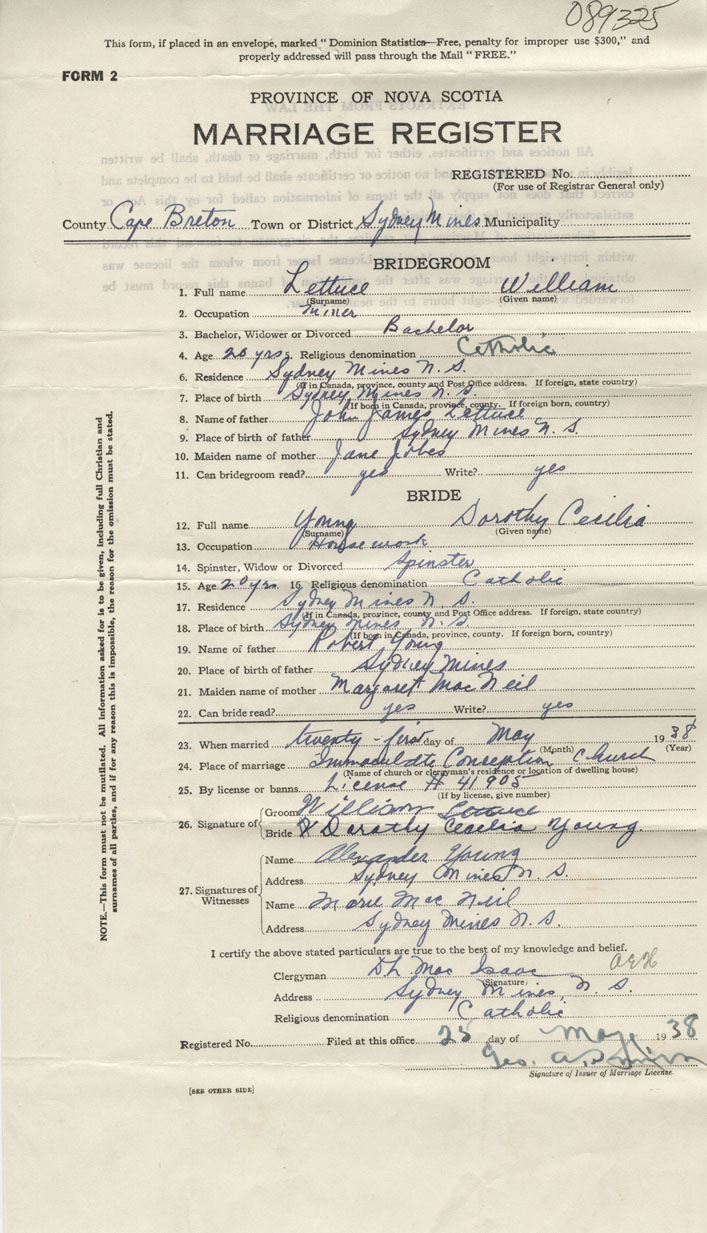 089325
This form, if placed in an envelope, marked "Dominion Statistics—Free, penalty for improper use $300," and
properly addressed will pass through the Mail "FREE."
FORM 2
PROVINCE OF NOVA SCOTIA
MARRIAGE REGISTER
REGISTERED No.
(For use of Registrar General only)
County Cape Breton Town or District Sydney Mines Municipality
BRIDEGROOM
1. Full name Lettuce William
(Surname) (Given name)
2. Occupation Miner
3. Bachelor, Widower or Divorced Bachelor
4. Age 20 yrs 5. Religious denomination Catholic
6. Residence Sydney Mines N. S.
(If in Canada, province, county and Post Office address. If foreign, state country)
7. Place of birth Sydney Mines N. S.
(If born in Canada, province, county. If foreign born, country)
8. Name of father John James Lettuce
9. Place of birth of father Sydney Mines N. S.
10. Maiden name of mother Jane Jobes
11. Can bridegroom read? yes Write? yes
BRIDE
12. Full name Young Dorothy Cecilia
(Surname) (Given name)
13. Occupation Housework
14. Spinster, Widow or Divorced Spinster
15. Age 20 yrs 16. Religious denomination Catholic
17. Residence Sydney Mines N. S.
(If in Canada, province, county and Post Office address. If foreign, state country)
18. Place of birth Sydney Mines N. S.
(If born in Canada, province, county. If foreign born, country)
19. Name of father Robert Young
20. Place of birth of father Sydney Mines
21. Maiden name of mother Margaret MacNeil
22. Can bride read? yes Write? yes
23. When married twenty-first day of May 1938
(Month) (Year)
24. Place of marriage Immaculate Conception Church
(Name of church or clergyman's residence or location of dwelling house)
25. By license or banns License # 41905
(If by license, give number)
26. Signature of
Groom William Lettuce
Bride X Dorothy Cecilia Young.
27. Signatures of Witnesses
Name Alexander Young
Address Sydney Mines N. S.
Name Marie Mac Neil
Address Sydney Mines N. S.
I certify the above stated particulars are true to the best of my knowledge and belief.
Clergyman Mac Isaac
(Signature)
Address Sydney Mines, N. S.
Religious denomination Catholic
Registered No. Filed at this office 25 day of May 1938
Geo. A.
Signature of Issuer of Marriage License.
[SEE OTHER SIDE]
NOTE.—This form must not be mutilated. All information asked for is to be given, including full Christian and
surnames of all parties, and if for any reason this is impossible, the reason for the omission must be stated.